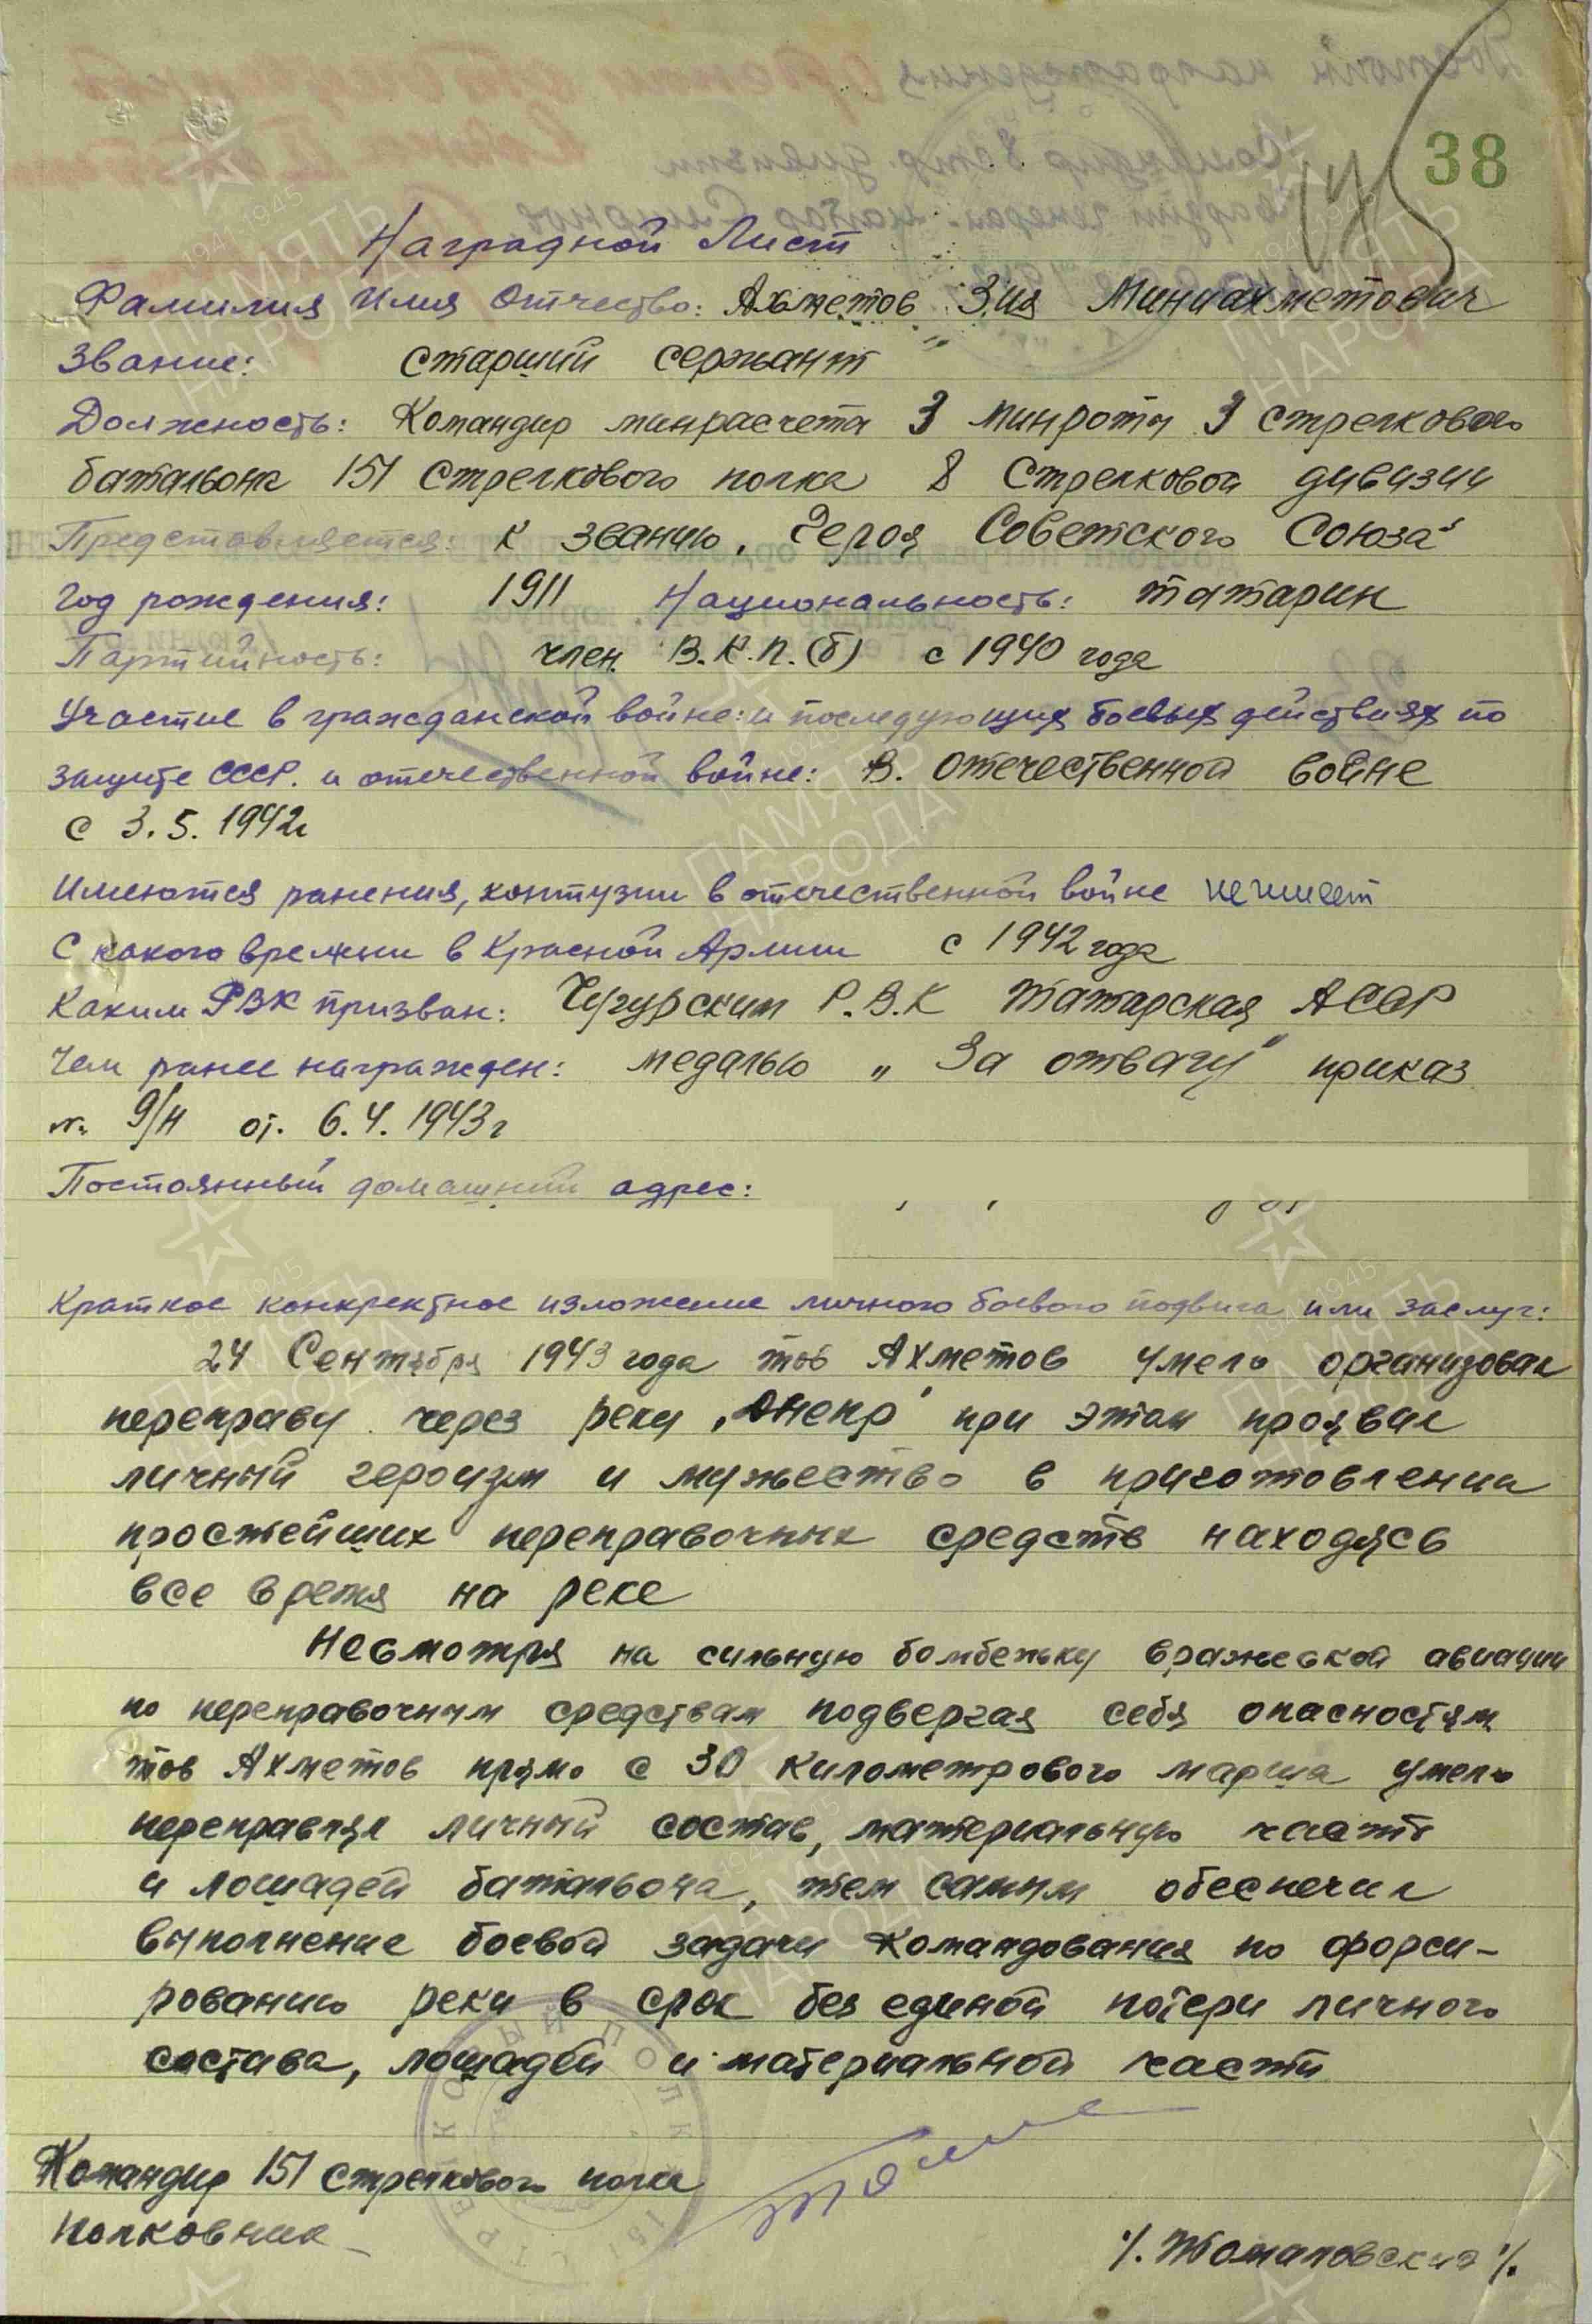 38
Наградной Лист
Фамилия Имя Отчество: Ахметов Зия Миниахметович
Звание: старший сержант
Должность: Командир минрасчета 3 минроты 3 стрелкового
батальона 151 стрелкового полка 8 стрелковой дивизии
Представляется: к званию „Героя Советского Союза"
Год рождения: 1911 Национальность: татарин
Партийность: член В.К.П.(б) с 1940 года
Участие в гражданской войне: и последующих боевых действиях по
защите СССР. и отечественной войне: В. Отечественной войне
с 3.5.1942г
Имеются ранения, контузии в отечественной войне не имеет
С какого времени в Красной Армии с 1942 года
Каким РВК призван: Р.В.К Татарская АССР
Чем ранее награжден: медалью „За отвагу" приказ
№ 9/Н от. 6.4.1943г
Постоянный домашний адрес:
Краткое конкректное изложение личного боевого подвига или заслуг:
24 Сентября 1943 года тов Ахметов умело организовал
переправу через реку „Днепр" при этом проявил
личный героизм и мужество в приготовлении
простейших переправочных средств находясь
все время на реке
Несмотря на сильную бомбежку вражеской авиации
по переправочным средствам подвергая себя опасностям
тов Ахметов прямо с 30 километрового марша умело
переправлял личный состав, материальную часть
и лошадей батальона, тем самым обеспечил
выполнение боевой задачи командования по форси-
рованию реки в срок без единой потери личного
состава, лошадей и материальной части
Командир 151 стрелкового полка
Полковник
/. Томаловский /.
ПАМЯТЬ НАРОДА
1941-1945